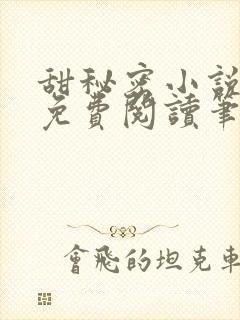 甜秘密小說
免費閱讀筆
會飛的坦克車